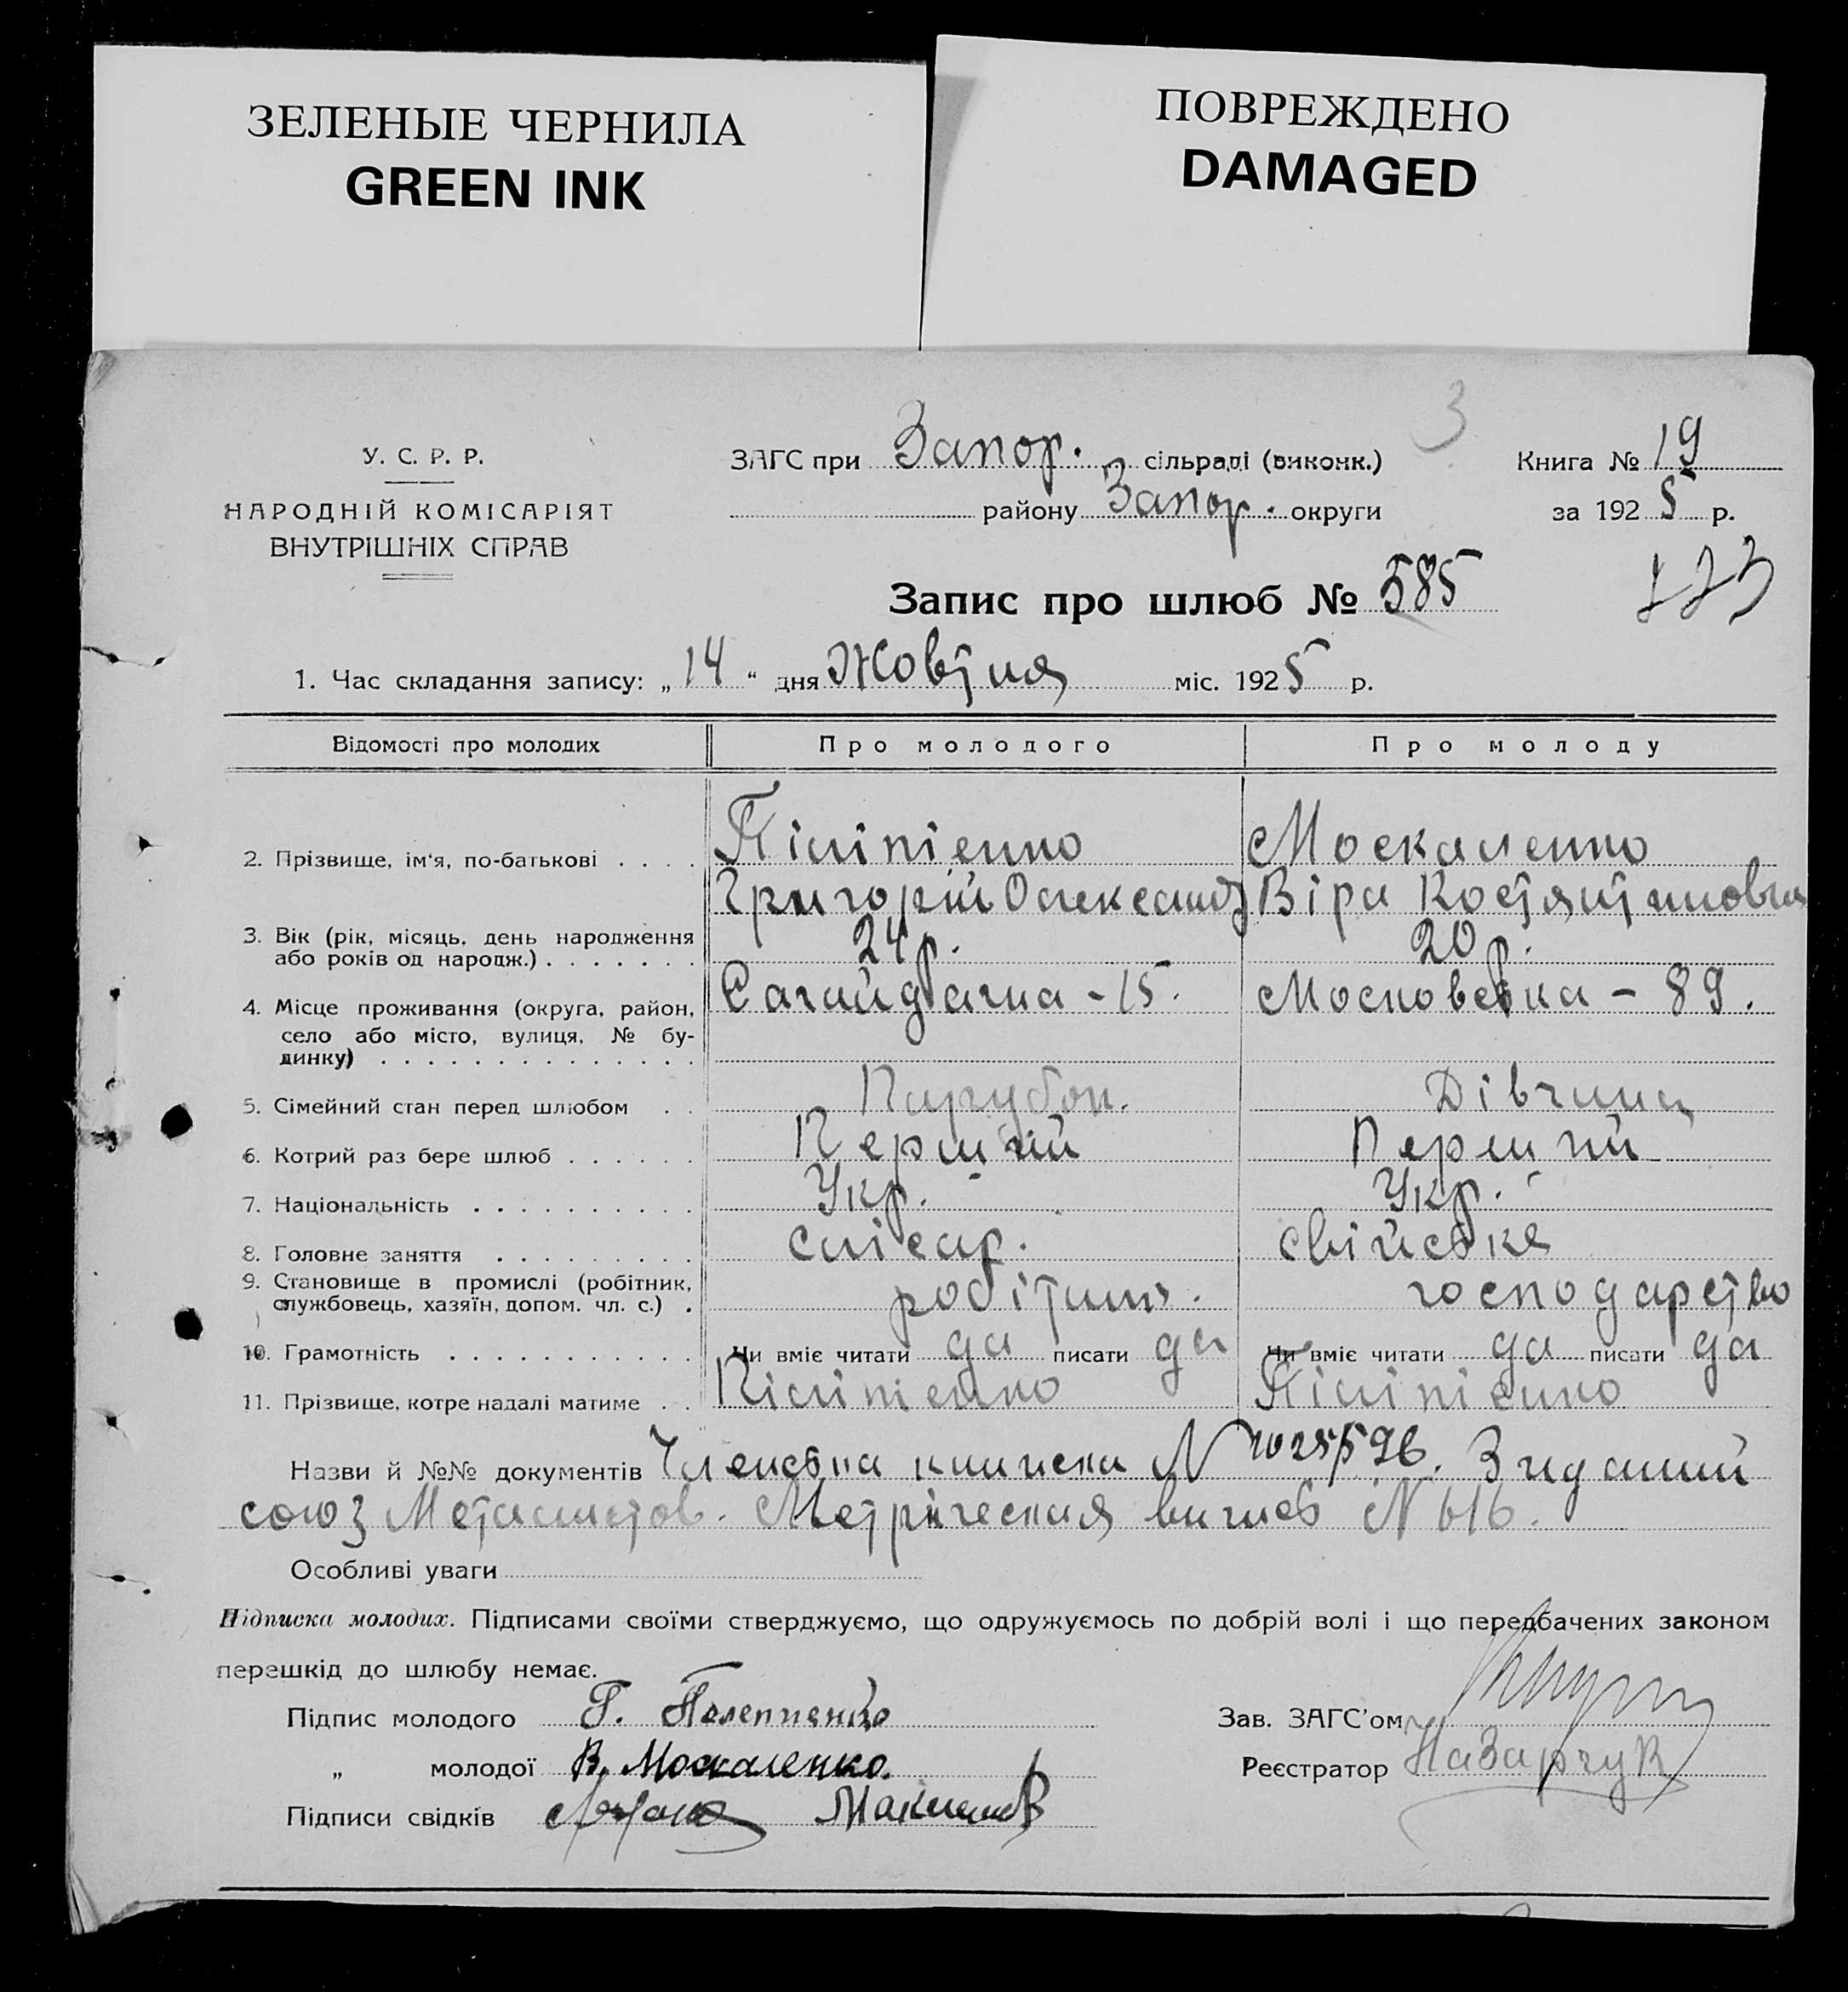 ЗЕЛЕНЫЕ ЧЕРНИЛА
GREEN INK
ПОВРЕЖДЕНО
DAMAGED
3
У. С. Р. Р.
НАРОДНІЙ КОМІСАРІЯТ
ВНУТРІШНІХ СПРАВ
ЗАГС при Запор. сільраді (виконк.)
району Запор. округи
Книга № 19
за 1925 р.
Запис про шлюб № 585
1. Час складання запису: „14“ дня Жовтня міс. 1925 р.
Відомості про молодих Про молодого Про молоду
2. Прізвище, ім'я, по-батькові . . . . Піліпієнко Москаленко
Григорій Олександ Віра Костянтиновна
3. Вік (рік, місяць, день народження
або років од народж.) . . . . . . . 24 р. 20 р.
4. Місце проживання (округа, район, Сагайдачна - 15. Московська - 89.
село або місто, вулиця, № бу-
динку) . . . . . . . . . . . . . .
5. Сімейний стан перед шлюбом . . Парубок. Дівчина
6. Котрий раз бере шлюб . . . . . . Перший Перший
7. Національність . . . . . . . . . . Укр. Укр.
8. Головне заняття . . . . . . . . . слісар. свійське
9. Становище в промислі (робітник,
службовець, хазяїн, допом. чл. с.) . робітник. господарство
10. Грамотність . . . . . . . . . . . Чи вміє читати да писати да Чи вміє читати да писати да
11. Прізвище, котре надалі матиме . . Піліпієнко Піліпієнко
Назви й №№ документів Членська книжка N
союз Металистов. Метрическая випись N 616.
Особливі уваги
Підписка молодих. Підписами своїми стверджуємо, що одружуємось по добрій волі і що передбачених законом
перешкід до шлюбу немає.
Підпис молодого Г. Пелепченко
Зав. ЗАГС'ом
„ молодої В. Москаленко.
Реєстратор Назарчук
Підписи свідків